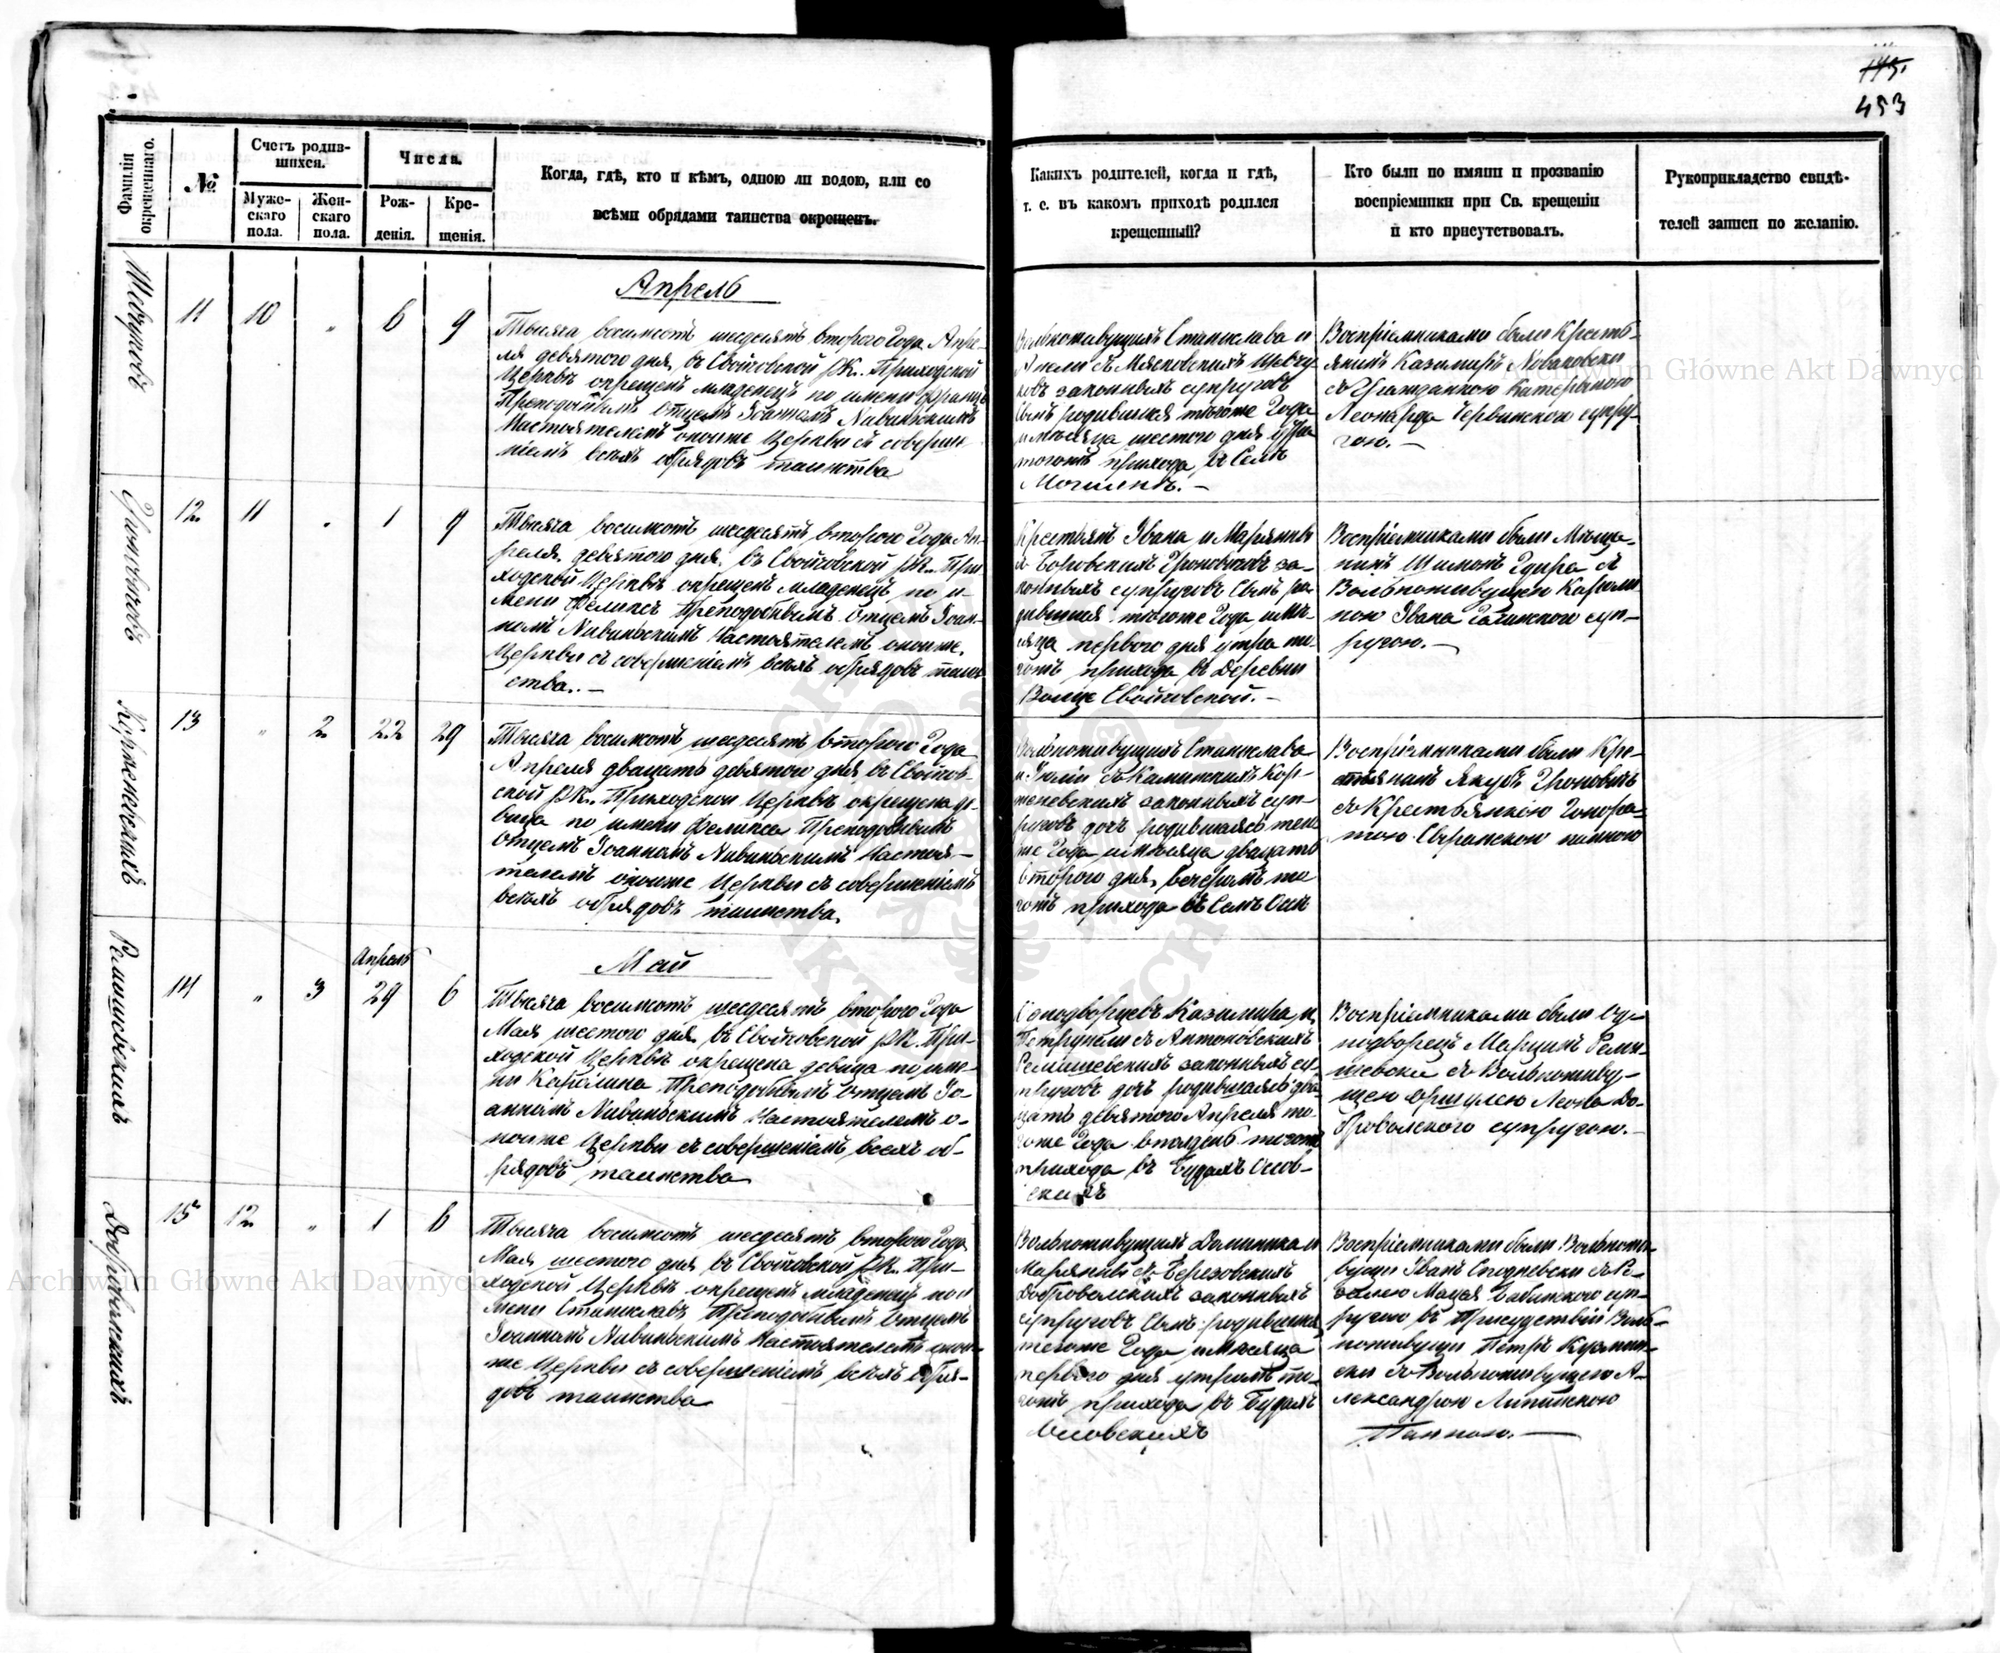 175
453
Фамилія окрещеннаго.
№
Счетъ родив-
шихся.
Муже-
скаго
пола.
Жен-
скаго
пола.
Числа.
Рож-
денія.
Кре-
щенія.
Когда, гдѣ, кто и кѣмъ, одною ли водою, или со
всѣми обрядами таинства окрещенъ.
Какихъ родителей, когда и гдѣ,
т. е. въ какомъ приходѣ родился
крещенный?
Кто были по имяни и прозванію
воспріемники при Св. крещеніи
и кто присутствовалъ.
Рукоприкладство свидѣ-
телей записи по желанію.
Шевчуковъ
11
10
"
6
9
Апрель
Тысяча восимсотъ шесдесятъ второго Года Апре-
ля девятого дня, въ Свойчовской РК. Приходской
Церквѣ окрещенъ младенецъ по имени Францъ
Преподобнымъ Отцемъ Іоанномъ Нивинскимъ
Настоятелемъ оноиже Церкви съ соверше-
ніемъ всехъ обрядовъ таинства
Вольноживущихъ Станислава и
Анели съ Мясковскихъ Шевчу-
ковъ законныхъ супруговъ
Сынъ родившися тогоже Года
и месяца шестого дня утра
тогожъ прихода въ Селѣ
Могильнѣ. —
Воспріемниками были Кресть-
янинъ Казимиръ Новаковски
съ Гражданкою Катерыною
Леонарда Червинскою супру-
гою. —
12
11
"
1
9
Тысяча восимсотъ шесдесятъ второго Года Ап-
реля девятого дня, въ Свойчовской РК. При-
ходской Церквѣ окрещенъ младенецъ по и-
мени Феликсъ Преподобнымъ Отцемъ Іоан-
номъ Нивинскимъ Настоятелемъ оноиже
Церкви съ совершеніемъ всехъ обрядовъ таин-
ства. —
Крестьянъ Ивана и Марянны
съ Боровскихъ Гроновичовъ за-
конныхъ супруговъ Сынъ ро-
дившися тогоже Года и ме-
сяца первого дня утра то-
гожъ прихода въ Деревни
Волице Свойчовской. —
Воспріемниками были Меща-
нинъ Шимонъ Гдыра съ
Вольноживущею Кароли-
ною Ивана супругою. —
Корженевскихъ
13
"
2
22
29
Тысяча восимсотъ шесдесятъ второго Года
Апреля двацать девятого дня въ Свойчов-
ской РК. Приходской Церквѣ окрещена де-
вица по имени Феликса Преподобнымъ
Отцемъ Іоанномъ Нивинскимъ Настоя-
телемъ оноиже Церкви съ совершеніемъ
всехъ обрядовъ таинства.
Вольноживущихъ Станислава
и Юліи съ Калинскихъ Кор-
женевскихъ законныхъ суп-
руговъ дочь родившаясь того
же Года и месяца двацать
второго дня, вечеромъ то-
гожъ прихода въ Селѣ
Воспріемниками были Кре-
стьянинъ Якубъ Гроновичъ
съ Крестьянкою Гонора-
тою панною
Ремишевскихъ
14
"
3
Апрель
29
6
Май
Тысяча восимсотъ шесдесятъ второго Года
Мая шестого дня въ Свойчовской РК. При-
ходской Церквѣ окрещена девица по име-
ни Каролина Преподобнымъ Отцемъ Іо-
анномъ Нивинскимъ Настоятелемъ о-
ноиже Церкви съ совершеніемъ всехъ об-
рядовъ таинства
Однодворцевъ Казимира и
Петрунели съ Антоновскихъ
Ремишевскихъ законныхъ су-
пруговъ дочь родившаясь два-
цать девятого Апреля то-
гоже Года вполдень тогожъ
прихода въ Будкахъ Осов-
скихъ
Воспріемниками были Од-
нодворецъ Марцинъ Реми-
шевски съ Вольноживу-
щею Оршулею Леона До-
бровольского супругою. —
Добровольскихъ
15
12
"
1
6
Тысяча восимсотъ шесдесятъ второго Года
Мая шестого дня въ Свойчовской РК. При-
ходской Церквѣ окрещенъ младенецъ по и
мени Станиславъ Преподобнымъ Отцемъ
Іоанномъ Нивинскимъ Настоятелемъ оной-
же Церкви съ совершеніемъ всехъ обря-
довъ таинства
Вольноживущихъ Доминика и
Марянны съ Березовскихъ
Добровольскихъ законныхъ
супруговъ Сынъ родившися
тогоже Года и месяца
первого дня утромъ то-
гожъ прихода въ Будкахъ
Осовскихъ
Воспріемниками были Вольножи-
вущи Иванъ съ Ро-
залею Мацея Бабинского суп-
ругою въ Присудствіи Воль-
ноживущи Петръ Кузмин-
ски съ Вольноживущею А-
лександрою Липинскою
Панною. —
Archiwum Główne Akt Dawnych
Archiwum Główne Akt Dawnych